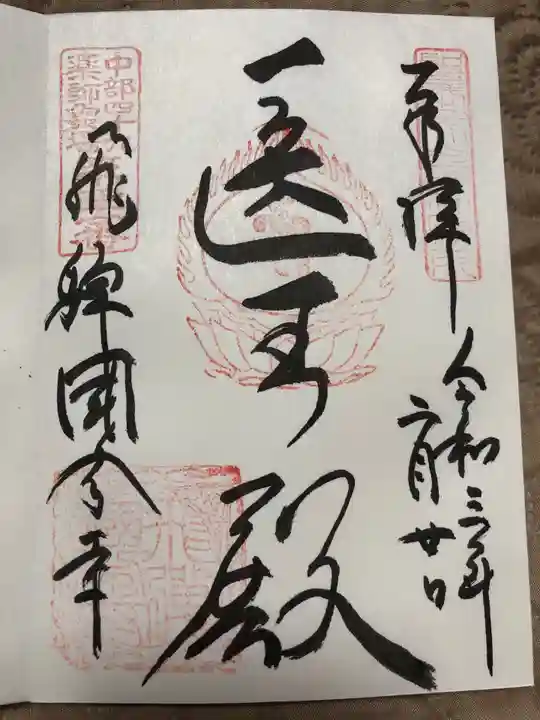 奉拝
令和三年
二月廿日
医王殿
飛騨國分寺
中部四十
薬師霊場